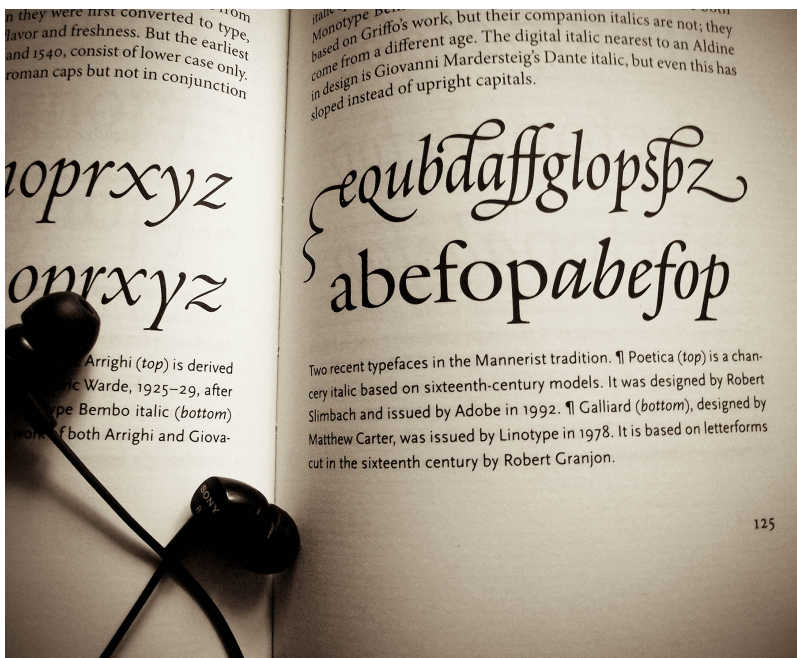 they were first converted to type,
flavor and freshness. But the earliest
and 1540, consist of lower case only.
roman caps but not in conjunction
oprxyz
oprxyz
Arrighi (top) is derived
Warde, 1925–29, after
Bembo italic (bottom)
of both Arrighi and Giova-
Monotype
based on Griffo's work, but their companion italics are not; they
come from a different age. The digital italic nearest to an Aldine
in design is Giovanni Mardersteig's Dante italic, but even this has
sloped instead of upright capitals.
equbdaffglopsþz
abefopabefop
Two recent typefaces in the Mannerist tradition. ¶ Poetica (top) is a chan-
cery italic based on sixteenth-century models. It was designed by Robert
Slimbach and issued by Adobe in 1992. ¶ Galliard (bottom), designed by
Matthew Carter, was issued by Linotype in 1978. It is based on letterforms
cut in the sixteenth century by Robert Granjon.
125
SONY
R